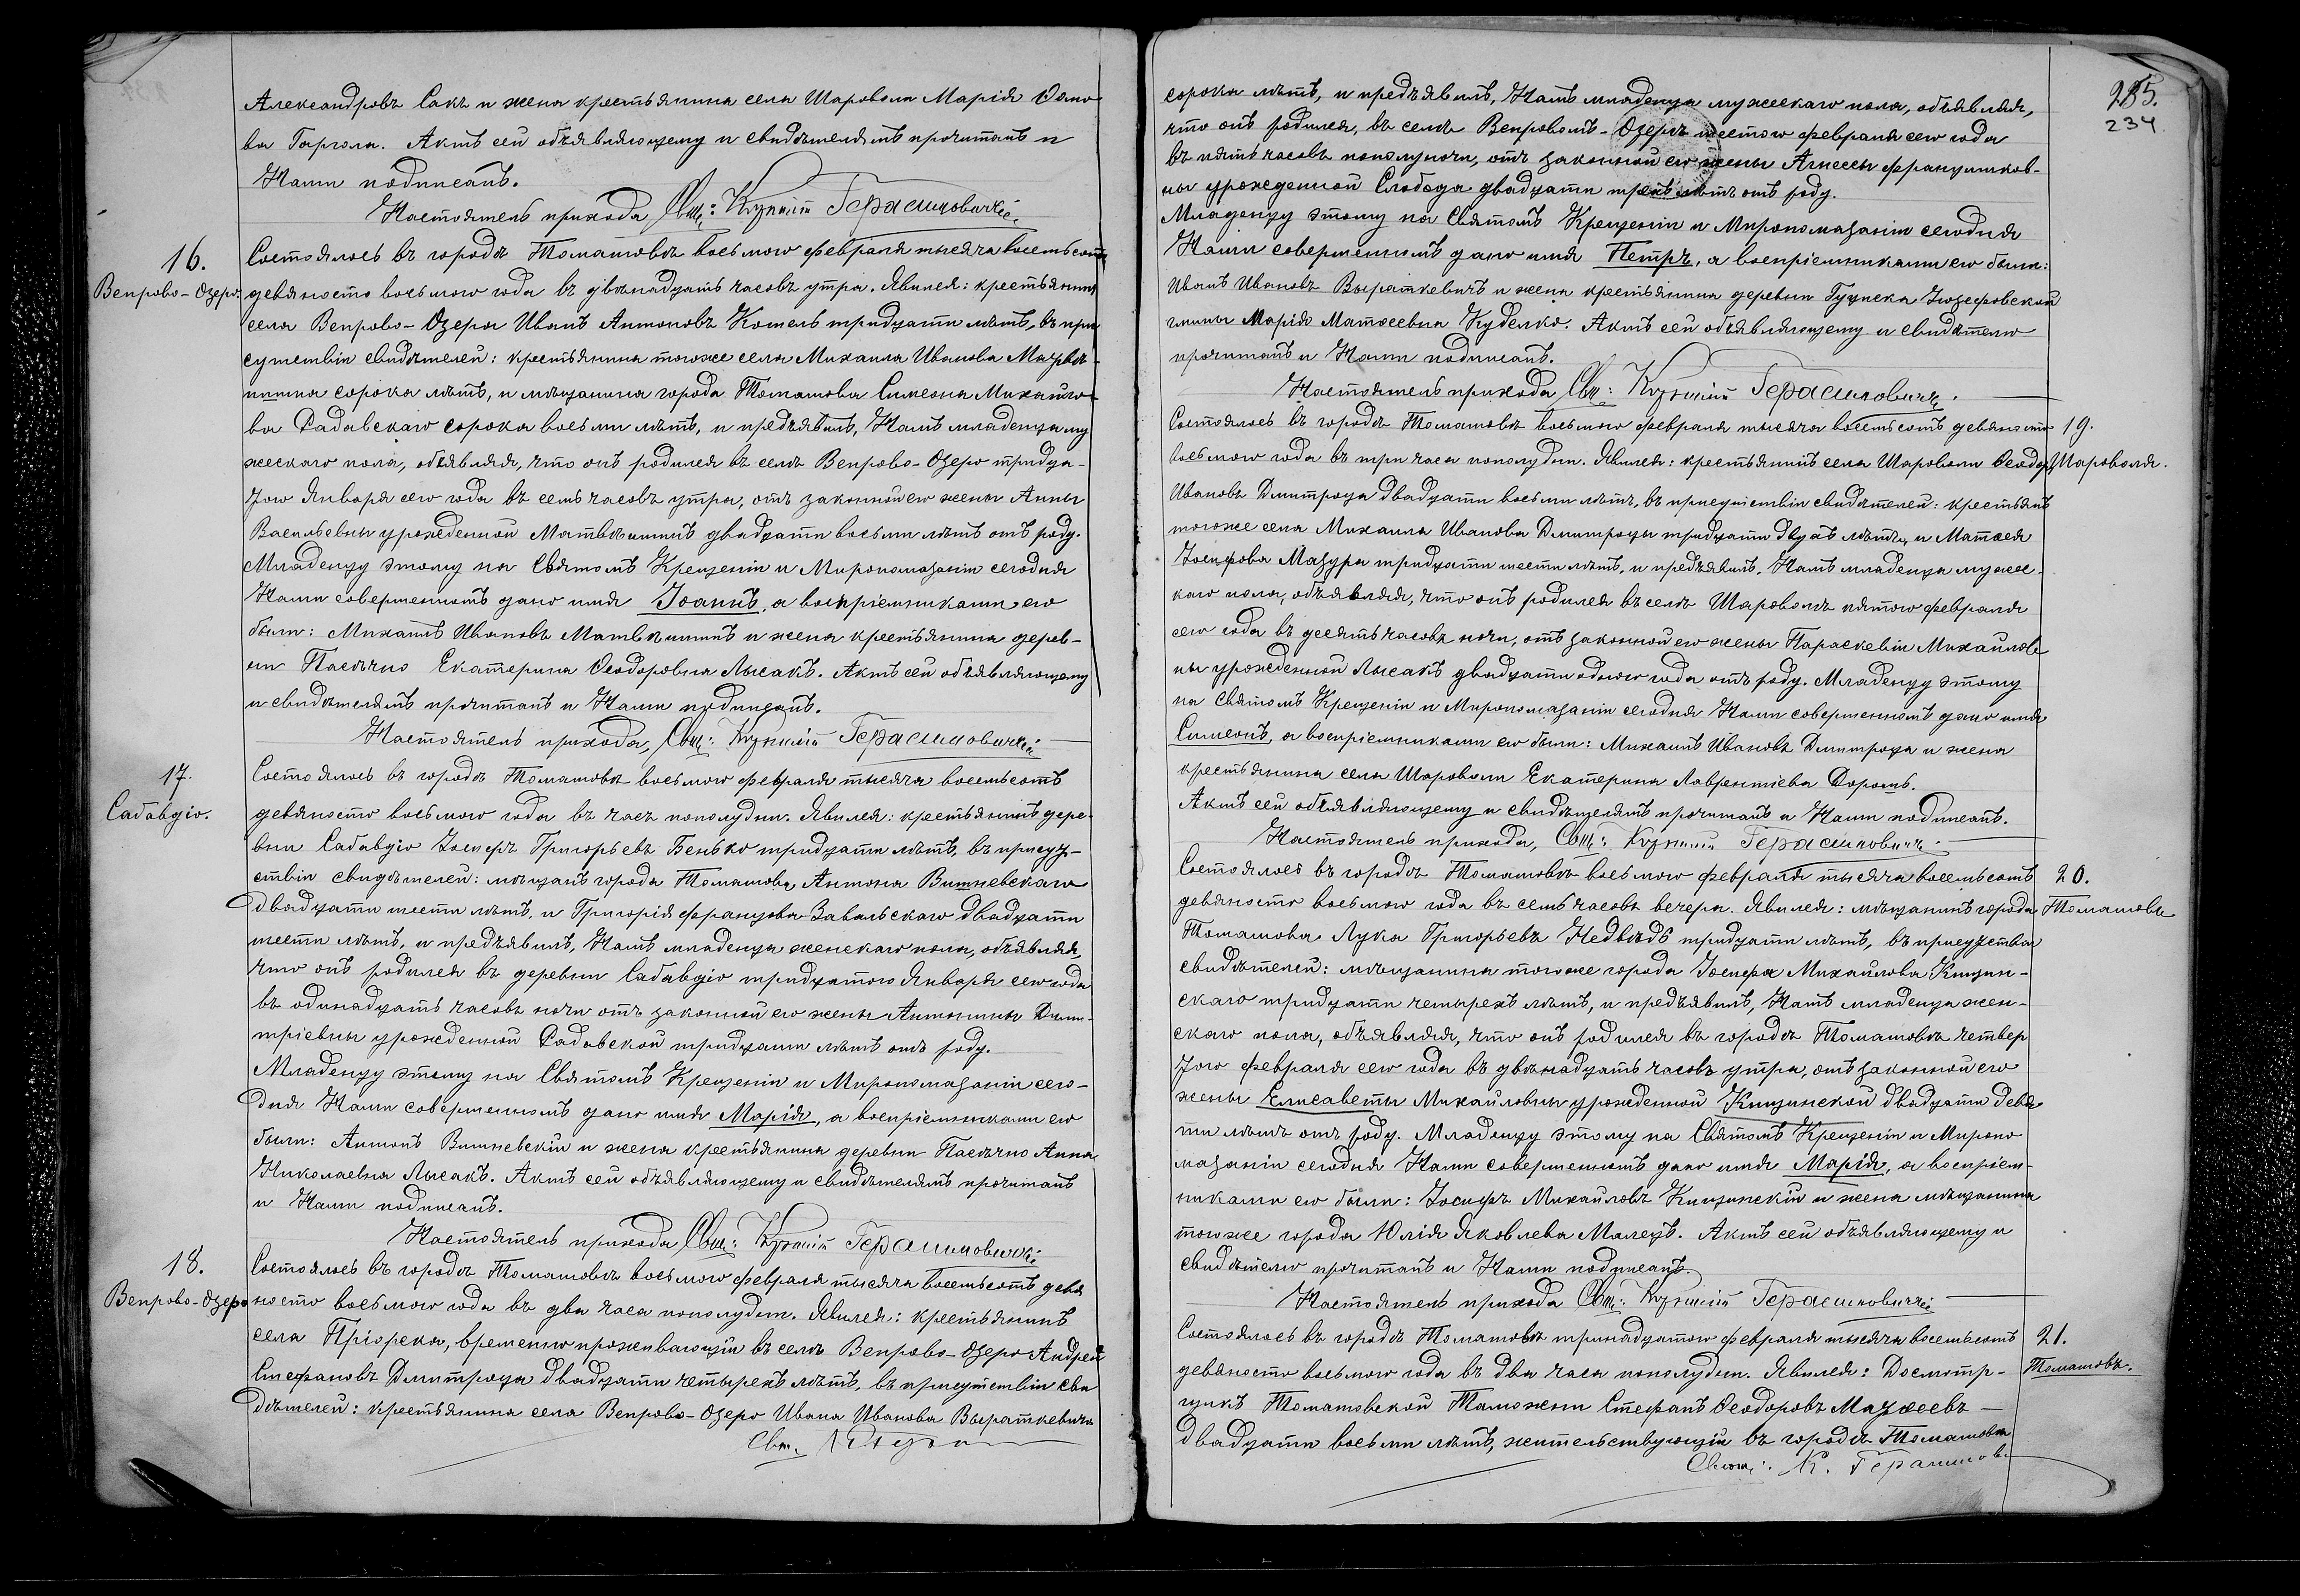 Александровъ Сакъ и жена крестьянина села Шароволи Марія Ѳомо-
ва Гаргола. Актъ сей объявляющему и свидѣтелямъ прочитанъ и
Нами подписанъ.
Настоятель прихода Свщ: Герасимовичъ
16.
Вепрово-Озеро.
Состоялось въ городѣ Томашовѣ восьмого февраля тысяча восемьсотъ
девяносто восьмого года въ двѣнадцать часовъ утра. Явился: крестьянинъ
села Вепрово-Озера Иванъ Антоновъ Котель тридцати лѣтъ, въ при
сутствіи свидѣтелей: крестьянина тогоже села Михаила Иванова
сорока лѣтъ, и мѣщанина города Томашова Симеона Михайло-
ва Садавскаго сорока восьми лѣтъ, и предъявилъ, Намъ младенца му
жескаго пола, объявляя, что онъ родился въ селѣ Вепрово-Озеро тридца-
того Января сего года въ семь часовъ утра, отъ законной его жены Анны
Васильевны урожденной Матвѣишинъ двадцати восьми лѣтъ отъ роду.
Младенцу этому на Святомъ Крещеніи и Миропомазаніи сегодня
Нами совершенномъ дано имя Іоаннъ, а воспріемниками его
были: Михаилъ Ивановъ Матвѣишинъ и жена крестьянина дерев-
ни Пасѣчно Екатерина Ѳеодоровна Лысакъ. Актъ сей объявляющему
и свидѣтелямъ прочитанъ и Нами подписанъ.
Настоятель прихода, Свщ: Герасимовичъ
17.
Сабавдіо.
Состоялось въ городѣ Томашовѣ восьмого февраля тысяча восемьсотъ
девяносто восьмого года въ часъ пополудни. Явился: крестьянинъ дере-
вни Сабавдіо Іосифъ Григорьевъ Бенько тридцати лѣтъ, въ присут-
ствіи свидѣтелей: мѣщанъ города Томашова, Антона Вишневскаго
двадцати шести лѣтъ, и Григорія Францова Завальскаго двадцати
шести лѣтъ, и предъявилъ, Намъ младенца женскаго пола, объявляя,
что онъ родился въ деревни Сабавдіо тридцатого Января сего года
въ одинадцать часовъ ночи отъ законной его жены Антонины Дми-
тріевны урожденной Садавской тридцати лѣтъ отъ роду.
Младенцу этому на Святомъ Крещеніи и Миропомазаніи сего-
дня Нами совершенномъ дано имя Марія, а воспріемниками его
были: Антонъ Вишневскій и жена крестьянина деревни Пасѣчно Анна
Николаевна Лысакъ. Актъ сей объявляющему и свидѣтелямъ прочитанъ
и Нами подписанъ.
Настоятель прихода Свщ: Герасимовичъ
18.
Вепрово-Озеро
Состоялось въ городѣ Томашовѣ восьмого февраля тысяча восемьсотъ девя
носто восьмого года въ два часа пополудни. Явился: крестьянинъ
села Пріорска, временно проживающій въ селѣ Вепрово-Озеро Андрей
Стефановъ Дмитроца двадцати четырехъ лѣтъ, въ присутствіи сви
дѣтелей: крестьянина села Вепрово-Озеро Ивана Иванова Выраткевича
Свщ.
285.
234
сорока лѣтъ, и предъявилъ, Намъ младенца мужескаго пола, объявляя,
что онъ родился, въ селѣ Вепровомъ-Озерѣ шестого февраля сего года
въ пять часовъ пополуночи, отъ законной его жены Агнессы Францишков-
ны урожденной Слобода двадцати трехъ лѣтъ отъ роду.
Младенцу этому на Святомъ Крещеніи и Миропомазаніи сегодня
Нами совершенномъ дано имя Петръ, а воспріемниками его были:
Иванъ Ивановъ Выраткевичъ и жена крестьянина деревни Гуциска Іюзефовской
гмины Марія Матѳеевна Куделко. Актъ сей объявляющему и свидѣтелю
прочитанъ и Нами подписанъ.
Настоятель прихода Свщ: Герасимовичъ.
19.
Шароволя.
Состоялось въ городѣ Томашовѣ восьмого февраля тысяча восемьсотъ девяносто
восьмого года въ три часа пополудни. Явился: крестьянинъ села Шароволи Ѳеодоръ
Ивановъ Дмитроца двадцати восьми лѣтъ, въ присутствіи свидѣтелей: крестьянъ
тогоже села Михаила Иванова Дмитроцы тридцати двухъ лѣтъ, и Матѳея
Іосифова Мазура тридцати шести лѣтъ, и предъявилъ, Намъ младенца мужес-
каго пола, объявляя, что онъ родился въ селѣ Шароволѣ пятого февраля
сего года въ десять часовъ ночи, отъ законной его жены Параскевіи Михайлов-
ны урожденной Лысакъ двадцати одного года отъ роду. Младенцу этому
на Святомъ Крещеніи и Миропомазаніи сегодня Нами совершенномъ дано имя
Симеонъ, а воспріемниками его были: Михаилъ Ивановъ Дмитроца и жена
крестьянина села Шароволи Екатерина Лаврентіева Дорошъ.
Актъ сей объявляющему и свидѣтелямъ прочитанъ и Нами подписанъ.
Настоятель прихода, Свщ: Герасимовичъ.
20.
Томашовъ
Состоялось въ городѣ Томашовѣ восьмого февраля тысяча восемьсотъ
девяносто восьмого года въ семь часовъ вечера. Явился: мѣщанинъ города
Томашова Лука Григорьевъ Недвѣдь тридцати лѣтъ, въ присутствіи
свидѣтелей: мѣщанина тогоже города Іосифа Михайлова Кищин-
скаго тридцати четырехъ лѣтъ, и предъявилъ, Намъ младенца жен-
скаго пола, объявляя, что онъ родился въ городѣ Томашовѣ четвер
того февраля сего года въ двѣнадцать часовъ утра, отъ законной его
жены Елисаветы Михайловны урожденной Кищинской двадцати девя
ти лѣтъ отъ роду. Младенцу этому на Святомъ Крещеніи и Миропо
мазаніи сегодня Нами совершенномъ дано имя Марія, а воспріем-
никами его были: Іосифъ Михайловъ Кищинскій и жена мѣщанина
тогоже города Юлія Яковлева Малецъ. Актъ сей объявляющему и
свидѣтелю прочитанъ и Нами подписанъ.
Настоятель прихода Свщ: Герасимовичъ
21.
Томашовъ.
Состоялось въ городѣ Томашовѣ тринадцатого февраля тысяча восемьсотъ
девяносто восьмого года въ два часа пополудни. Явился: Досмотр-
щикъ Томашовской Таможни Стефанъ Ѳеодоровъ
двадцати восьми лѣтъ, жительствующій въ городѣ Томашовѣ
Свящ: К. Герасимов